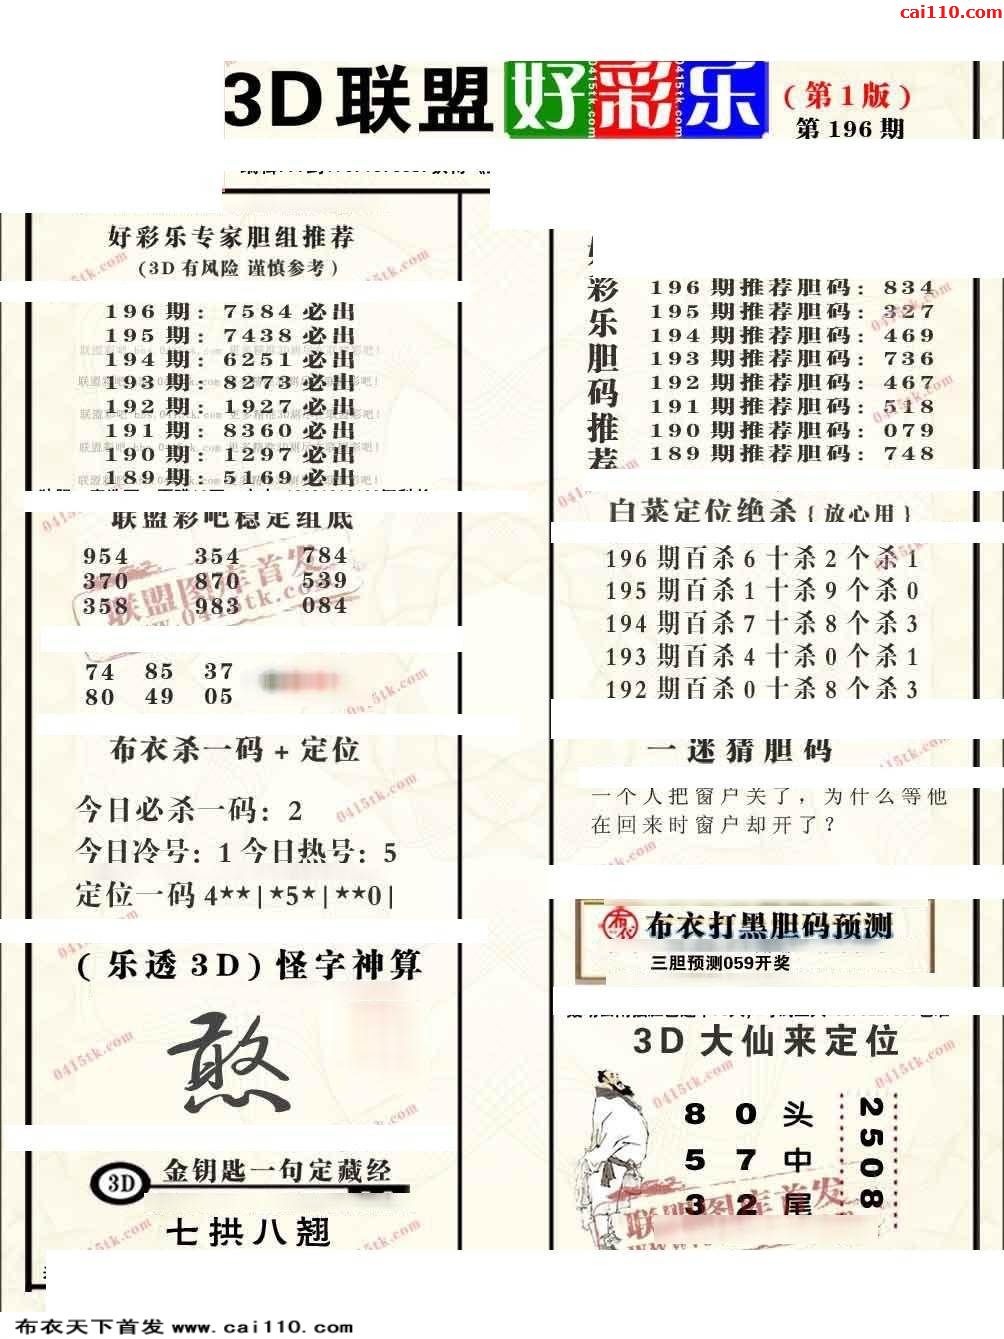 cai110.com
3D联盟 好彩乐 (第1版)
第196期
好彩乐专家胆组推荐
(3D有风险 谨慎参考)
196期: 7584必出
195期: 7438必出
194期: 6251必出
193期: 8273必出
192期: 1927必出
191期: 8360必出
190期: 1297必出
189期: 5169必出
联盟彩吧稳定组底
954 354 784
370 870 539
358 983 084
74 85 37
80 49 05
布衣杀一码+定位
今日必杀一码: 2
今日冷号: 1 今日热号: 5
定位一码 4**|*5*|**0|
(乐透3D)怪字神算
憨
3D 金钥匙一句定藏经
七拱八翘
彩乐胆码推荐
196期推荐胆码: 834
195期推荐胆码: 327
194期推荐胆码: 469
193期推荐胆码: 736
192期推荐胆码: 467
191期推荐胆码: 518
190期推荐胆码: 079
189期推荐胆码: 748
白菜定位绝杀{放心用}
196期百杀6十杀2个杀1
195期百杀1十杀9个杀0
194期百杀7十杀8个杀3
193期百杀4十杀0个杀1
192期百杀0十杀8个杀3
一迷猜胆码
一个人把窗户关了，为什么等他
在回来时窗户却开了?
布衣 布衣打黑胆码预测
三胆预测059开奖
3D大仙来定位
8 0 头
5 7 中
3 2 尾
2508
联盟图库首发
0415tk.com
布衣天下首发 www.cai110.com